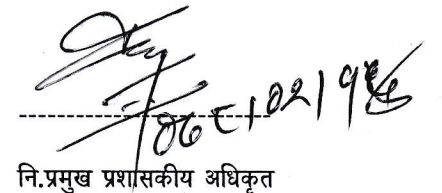 ०७८।०२।१५
नि.प्रमुख प्रशासकीय अधिकृत